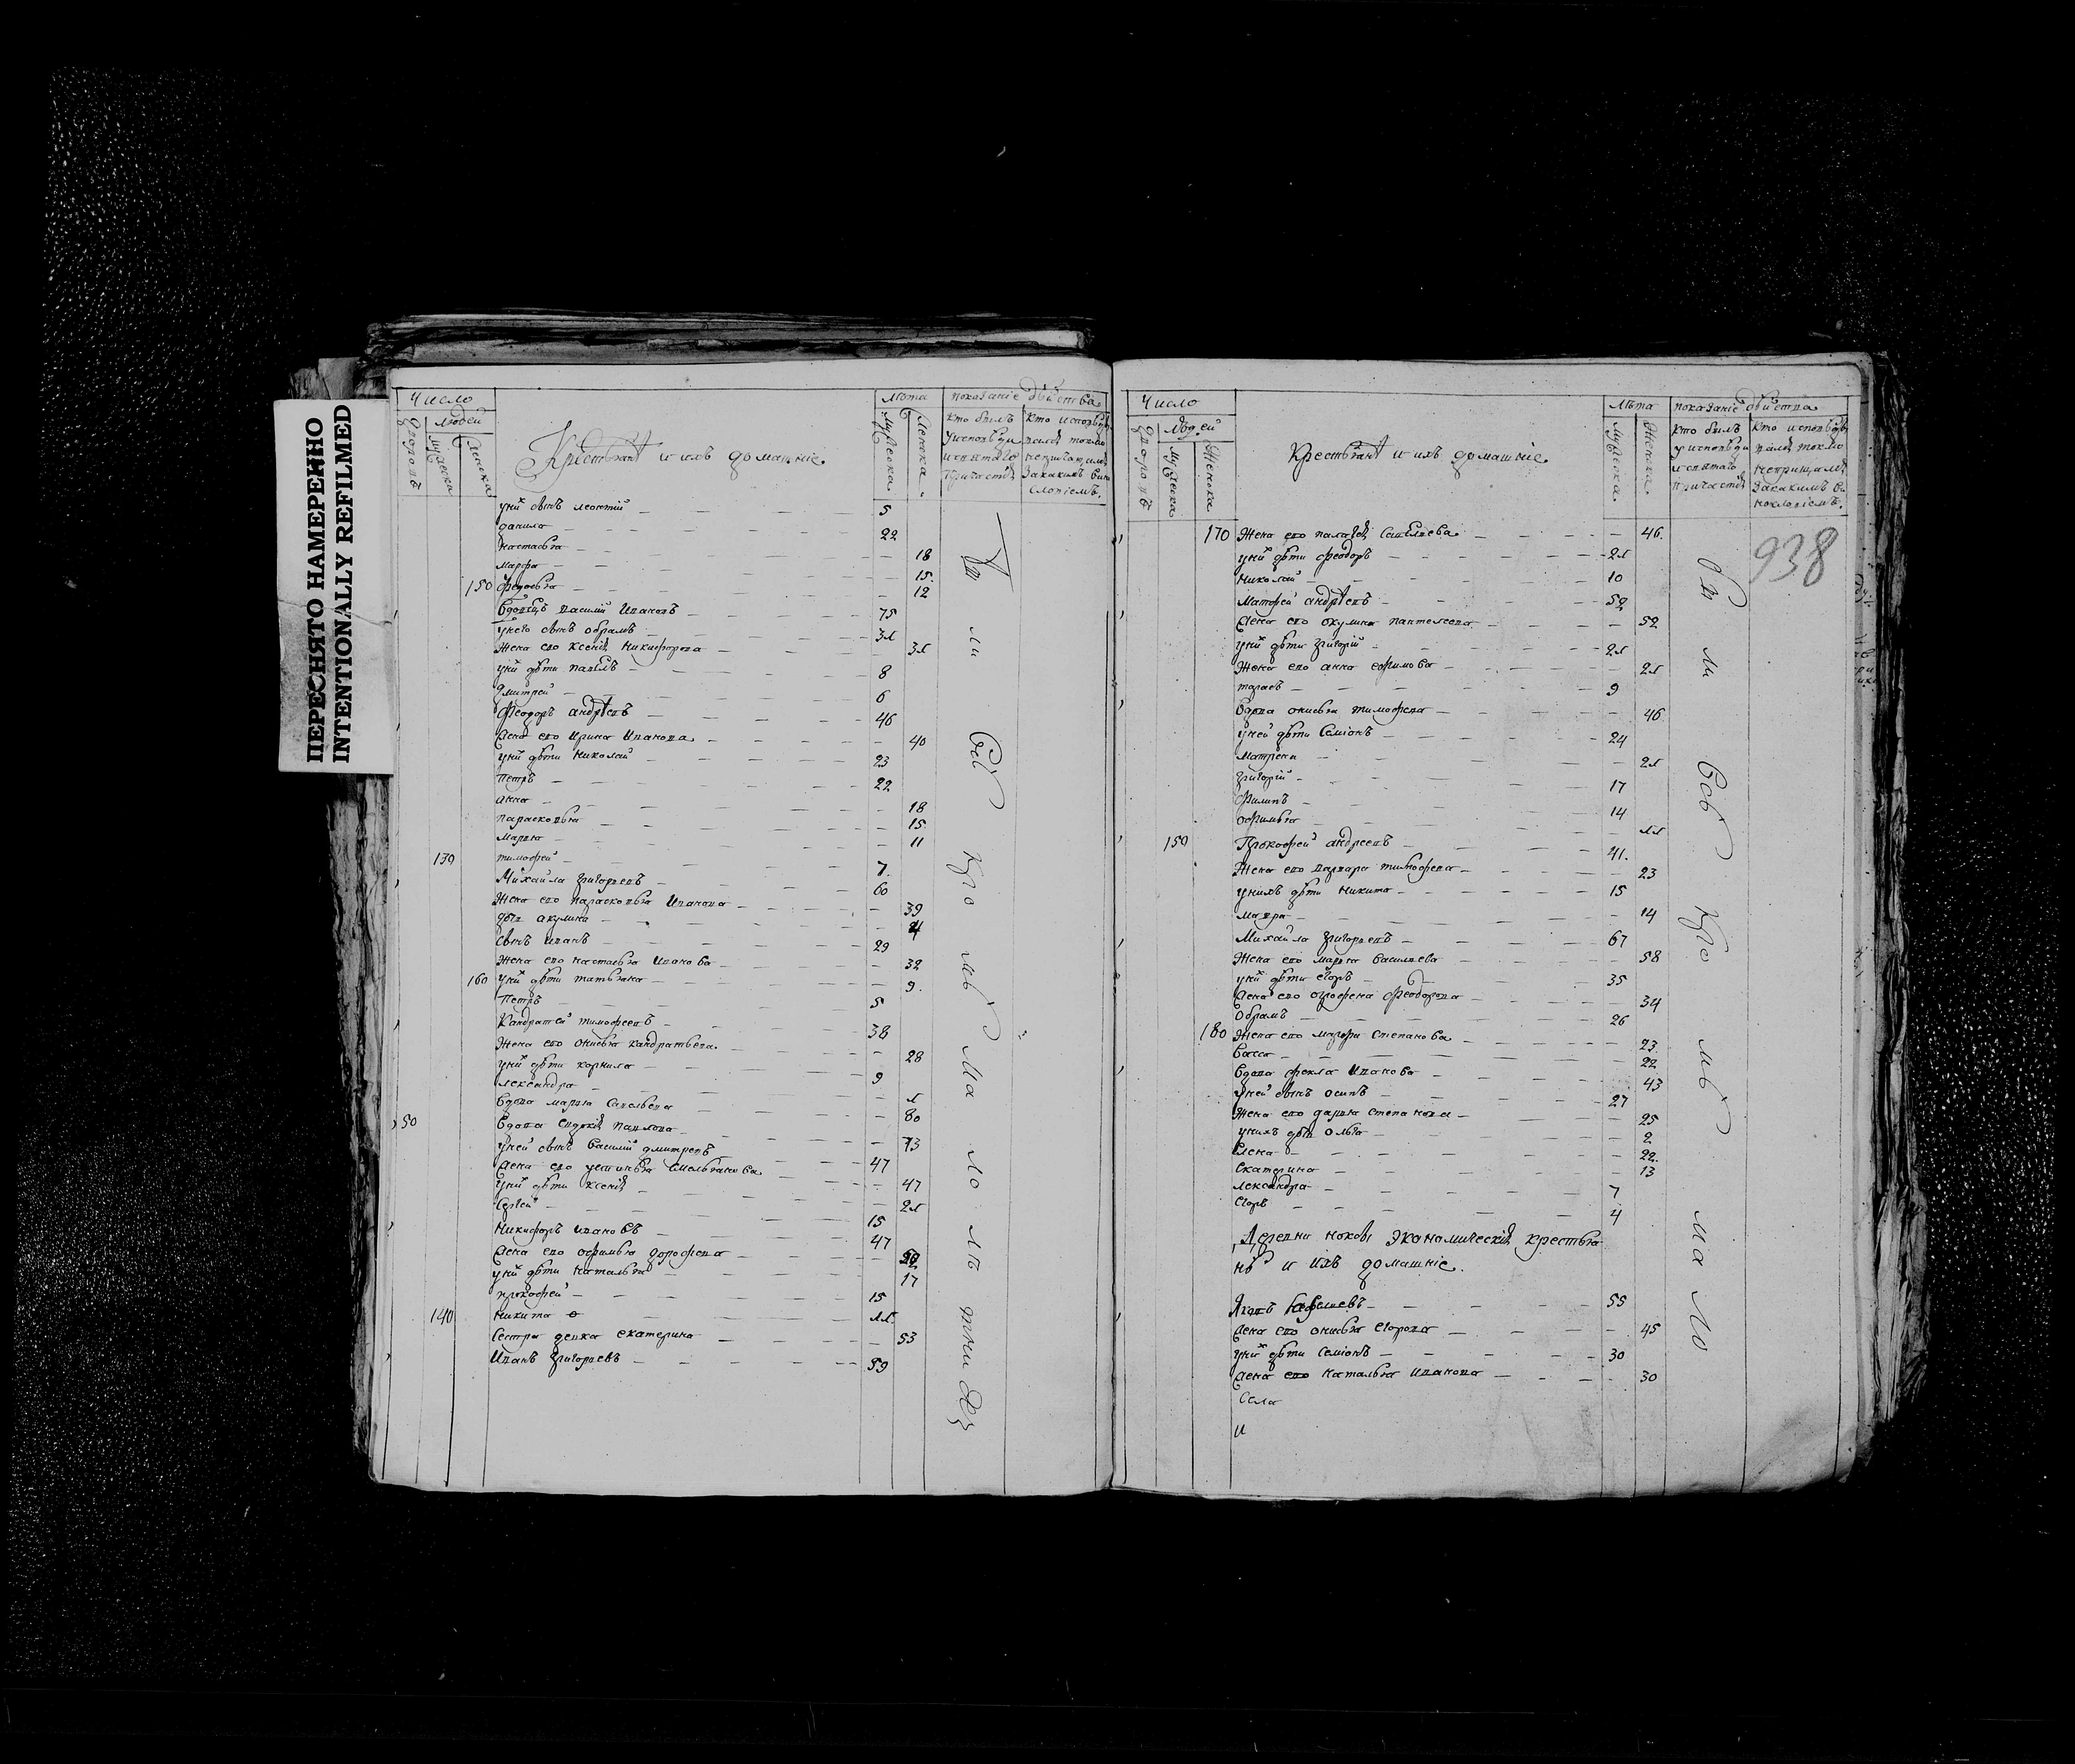 ПЕРЕСНЯТО НАМЕРЕННО
INTENTIONALLY REFILMED
Число
Людей
Дворовъ
Мужеска
Женска
Крестьянѣ и ихъ домашніе
Лѣта
Мужеска
Женска
показаніе дѣйства
кто былъ у исповѣди и святаго причастія
Кто исповѣдывался токмо не причащался
уних сынъ леонтий 5
данила 22
настасья 18
марфа 15
150 Федосья 12
вдовецъ василий Ивановъ 75
унего сынъ обрамъ 31
Жена его ксенія Никифорова 31
уних дѣти павелъ 8
дмитрей 6
Феодоръ андрѣевъ 46
Жена его Ирина Иванова 40
уних дѣти Николай 23
Петръ 22
анна 18
парасковья 15
марья 11
139 тимофей 7
Михайла григорьевъ 60
Жена его парасковья Иванова 39
дочь акулина
сынъ иванъ 29
Жена его настасья Иванова 32
160 уних дѣти татьяна 9
Петръ 5
Кандратей тимофеевъ 38
Жена его онисья кандратьева 28
уних дѣти корнила 9
лександра 1
вдова марья Савельева 80
50 вдова евдокія павлова 73
уней сынъ василий дмитревъ 47
Жена его устинья Емельянова 47
уних дѣти ксенія 21
Сергей 15
Никифоръ ивановъ 47
Жена его офимья дорофева
уних дѣти наталья 17
прокофей 15
140 никита 11
Сестра девка екатерина 53
Иванъ григорьевъ 59
всѣ
Число
Людей
Дворовъ
Мужеска
Женска
Крестьянѣ и ихъ домашніе
Лѣта
Мужеска
Женска
показаніе дѣйства
кто былъ у исповѣди и святаго причастія
Кто исповѣдывался токмо не причащался
938
170 Жена его палагея Савельева 46
уних дѣти феодоръ 21
николай 10
Матфей андрѣевъ 52
Жена его окулина пантелеева 52
уних дѣти григорій 21
Жена его анна ефимова 21
тарасъ 9
вдова онисья тимофева 46
уней дѣти Семіонъ 24
матрена 21
григорій 17
Филипъ 14
офимья 11
150 Прокофей андреевъ 41
Жена его варвара тимофева 23
унихъ дѣти никита 15
мавра 14
Михайла григорьевъ 67
Жена его марья василиева 58
уних дѣти егоръ 35
Жена его огрофена феодорова 34
Обрамъ 26
180 Жена его мавра Степанова 23
васса 22
вдова фекла Иванова 43
уней сынъ осипъ 27
Жена его дарья степанова 25
унихъ дѣти ольга 2
Елена 22
екатерина 13
лександра 7
Егоръ 4
всѣ
экономическія крестья
нѣ и ихъ домашніе
55
Жена его онисья егорова 45
уних дѣти Семіонъ 30
Жена его наталья иванова 30
Села
и